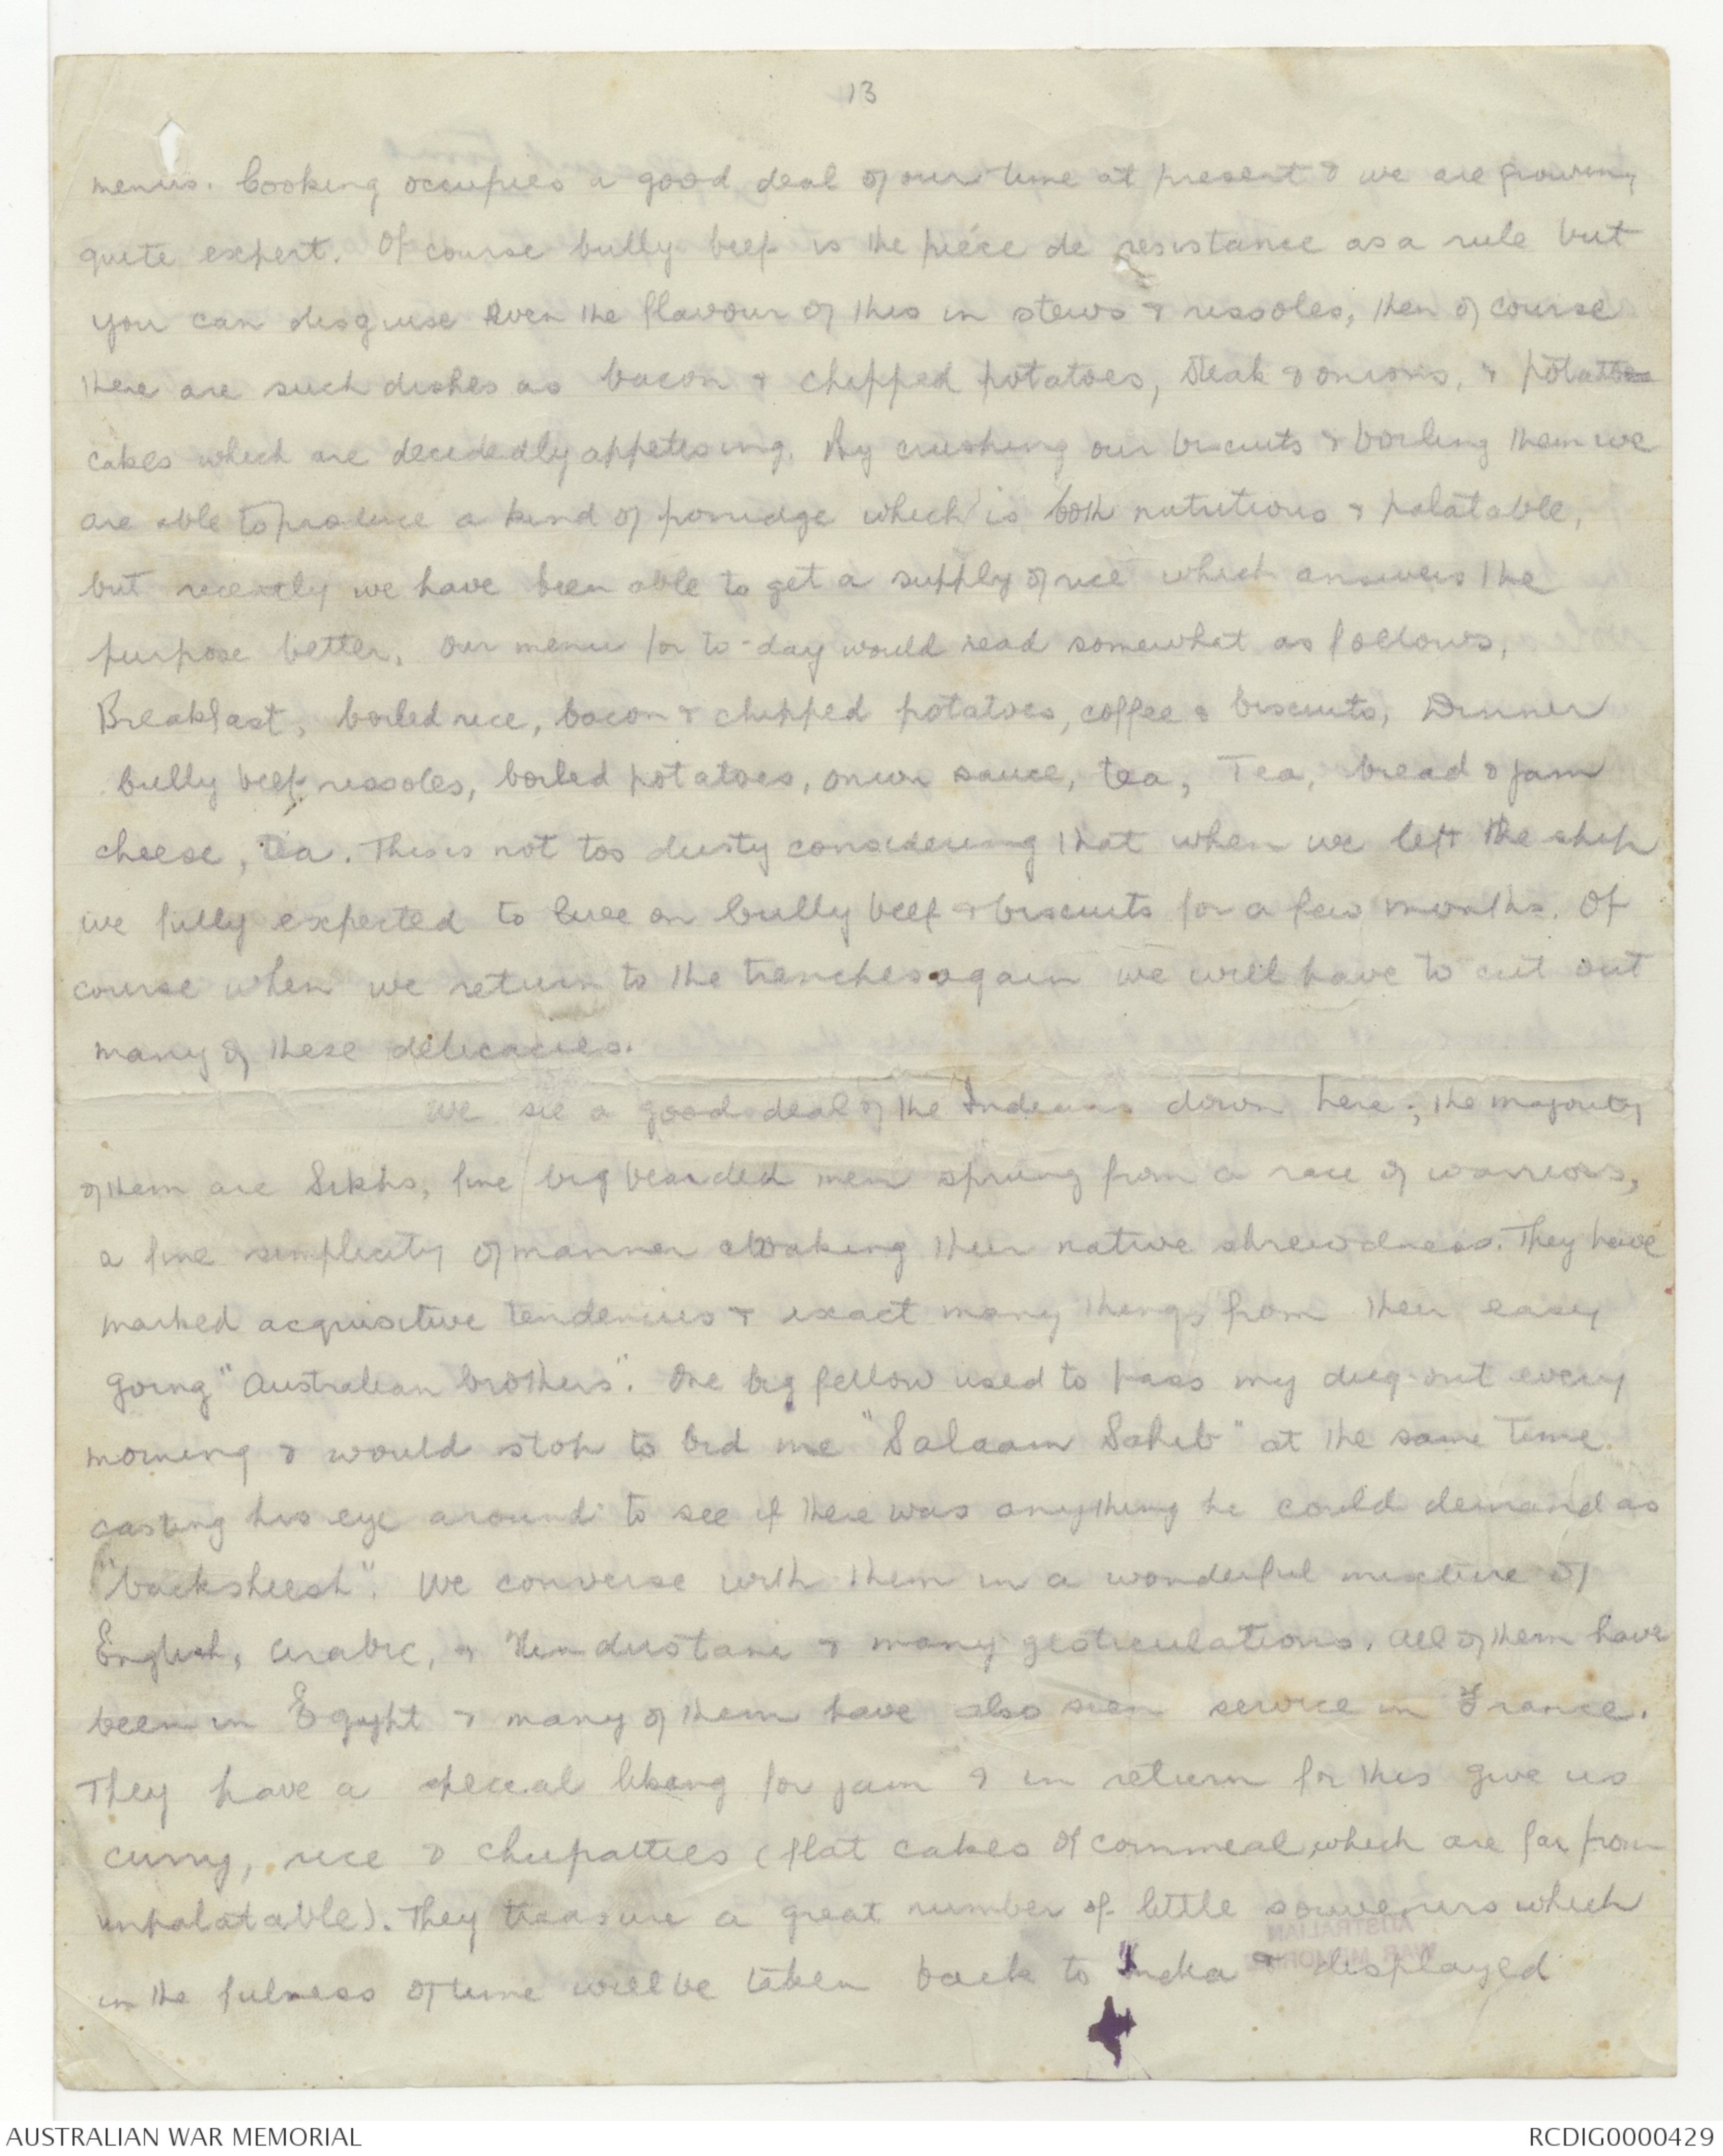 13
menus. Cooking occupies a good deal of our time at present & we are growing
quite expert. Of course bully beef is the piéce de resistance as a rule but
you can disguise even the flavour of this in stews & rissoles, then of course
there are such dishes as bacon & chipped potatoes, steak & onions, & potatoe
cakes which are decidedly appetising. By crushing our biscuits & boiling them we
are able to produce a kind of porridge which is both nutritious & palatable,
but recently we have been able to get a supply of rice which answers the
purpose better. Our menu for to-day would read somewhat as follows,
Breakfast, boiled rice, bacon & chipped potatoes, coffee & biscuits, Dinner
bully beef rissoles, boiled potatoes, onion sauce, tea, Tea, bread & jam
cheese, tea. This is not too dusty considering that when we left the ship
we fully expected to live on bully beef & biscuits for a few months. Of
course when we return to the trenches again we will have to cut out
many of these delicacies.
We see a good deal of the Indians down here; the majority
of them are Sikhs, fine big bearded men sprung from a race of warriors,
a fine simplicity of manner cloaking their native shrewdness. They have
marked acquisitive tendencies & exact many things from their easy
going "Australian brothers". One big fellow used to pass my dug-out every
morning & would stop to bid me "Salaam Sahib" at the same time
casting his eye around to see if there was anything he could demand as
"backsheesh". We converse with them in a wonderful mixture of
English, Arabic, & Hindustani & many gesticulations. All of them have
been in Egypt & many of them have also seen service in France.
They have a special liking for jam & in return for this give us
curry, rice & chupatties (flat cakes of cornmeal which are far from
unpalatable). They treasure a great number of little souvenirs which
in the fulness of time will be taken back to India & displayed
AUSTRALIAN
WAR MEMORIAL
AUSTRALIAN WAR MEMORIAL
RCDIG0000429